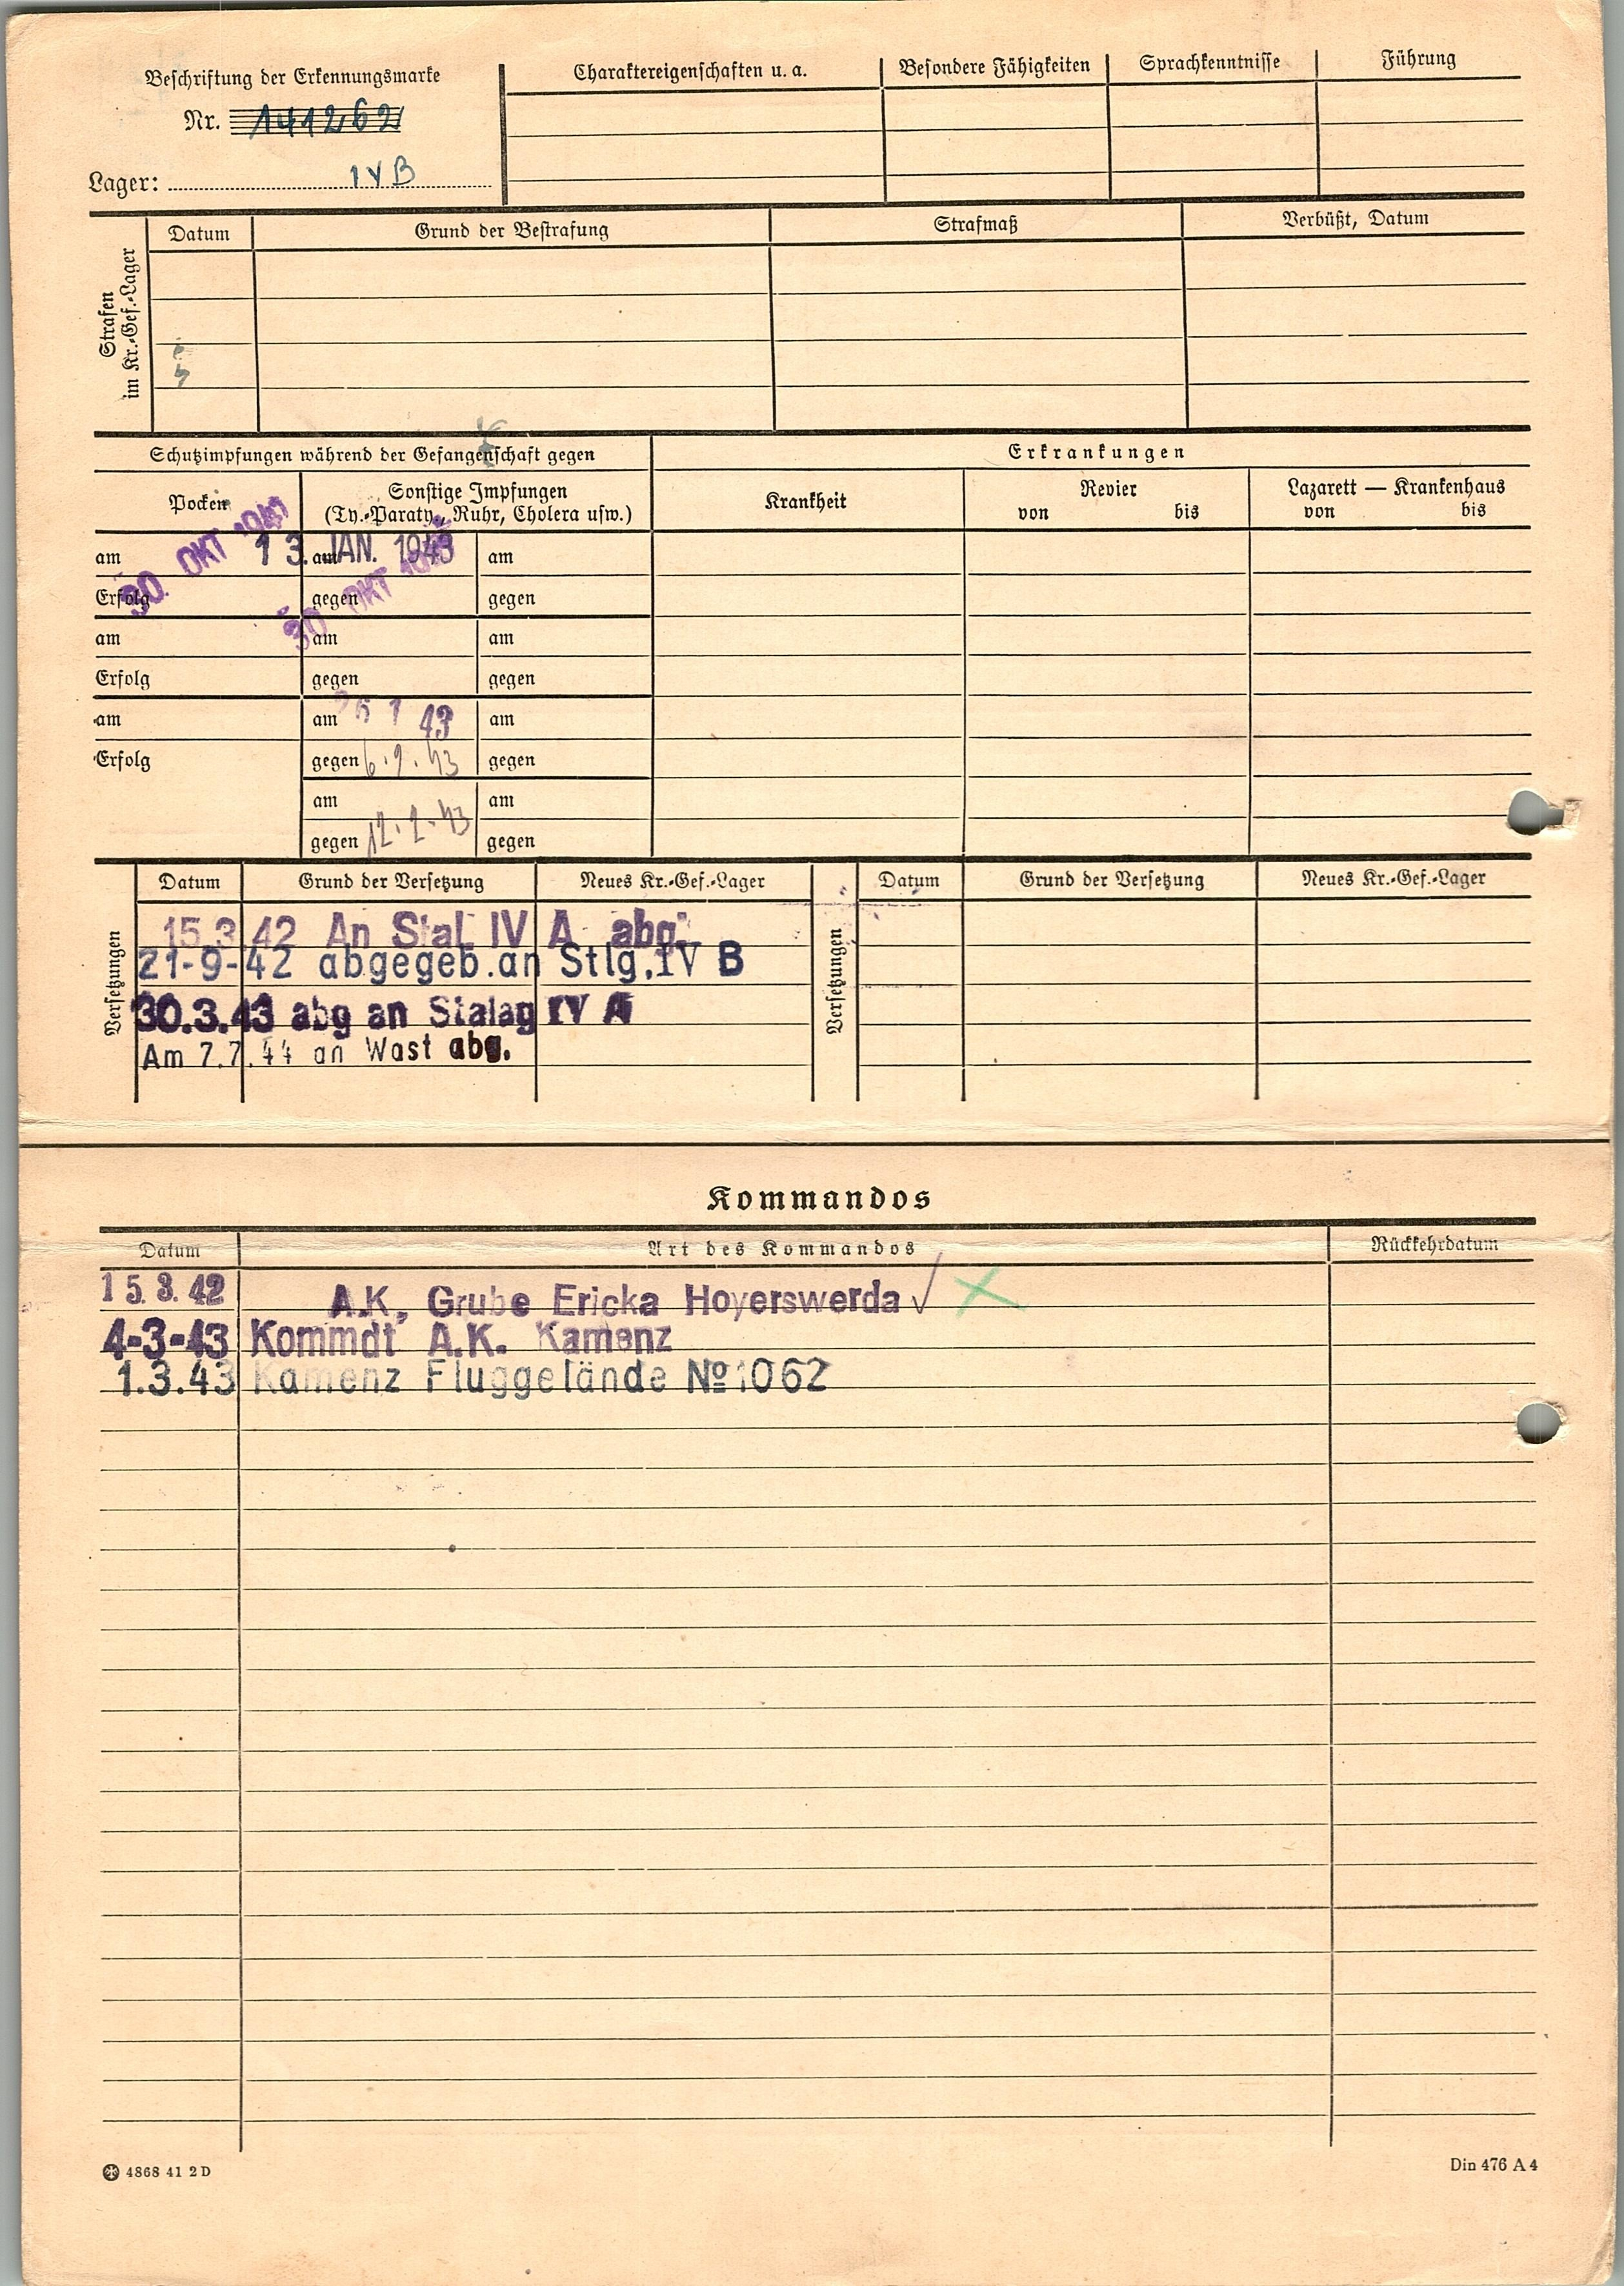 Beschriftung der Erkennungsmarke
Nr. 141262
Lager: IVB
Charaktereigenschaften u. a. Besondere Fähigkeiten Sprachkenntnisse Führung
Strafen im Kr.-Gef.-Lager
Datum Grund der Bestrafung Strafmaß Verbüßt, Datum
Schutzimpfungen während der Gefangenschaft gegen
Erkrankungen
Pocken
Sonstige Impfungen
(Ty.-Paraty., Ruhr, Cholera usw.)
Krankheit
Revier
von bis
Lazarett — Krankenhaus
von bis
am 30. OKT 1941 am 13. JAN. 1943 am
Erfolg gegen 30 OKT gegen
am am am
Erfolg gegen gegen
am am 26 1 43 am
Erfolg gegen 6.2.43 gegen
am am
gegen 12.2.43 gegen
Versetzungen
Datum Grund der Versetzung Neues Kr.-Gef.-Lager
15.3 42 An Stal. IV A abg.
21-9-42 abgegeb. an Stlg. IV B
30.3.43 abg an Stalag IV A
Am 7.7.44 an Wast abg.
Versetzungen
Datum Grund der Versetzung Neues Kr.-Gef.-Lager
Kommandos
Datum Art des Kommandos Rückkehrdatum
15.3.42 A.K. Grube Ericka Hoyerswerda
4-3-43 Kommdt A.K. Kamenz
1.3.43 Kamenz Fluggelände № 1062
4868 41 2 D
Din 476 A 4